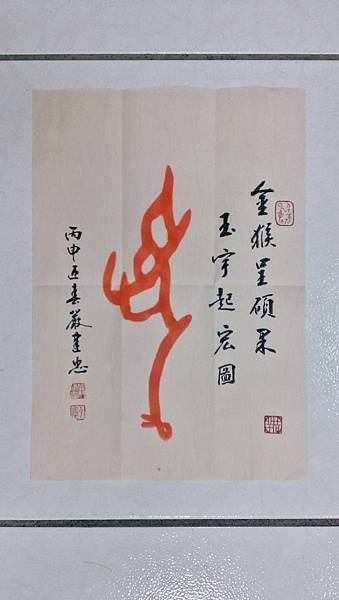 金猴呈碩果
玉宇起宏圖
丙申迎春嚴建忠